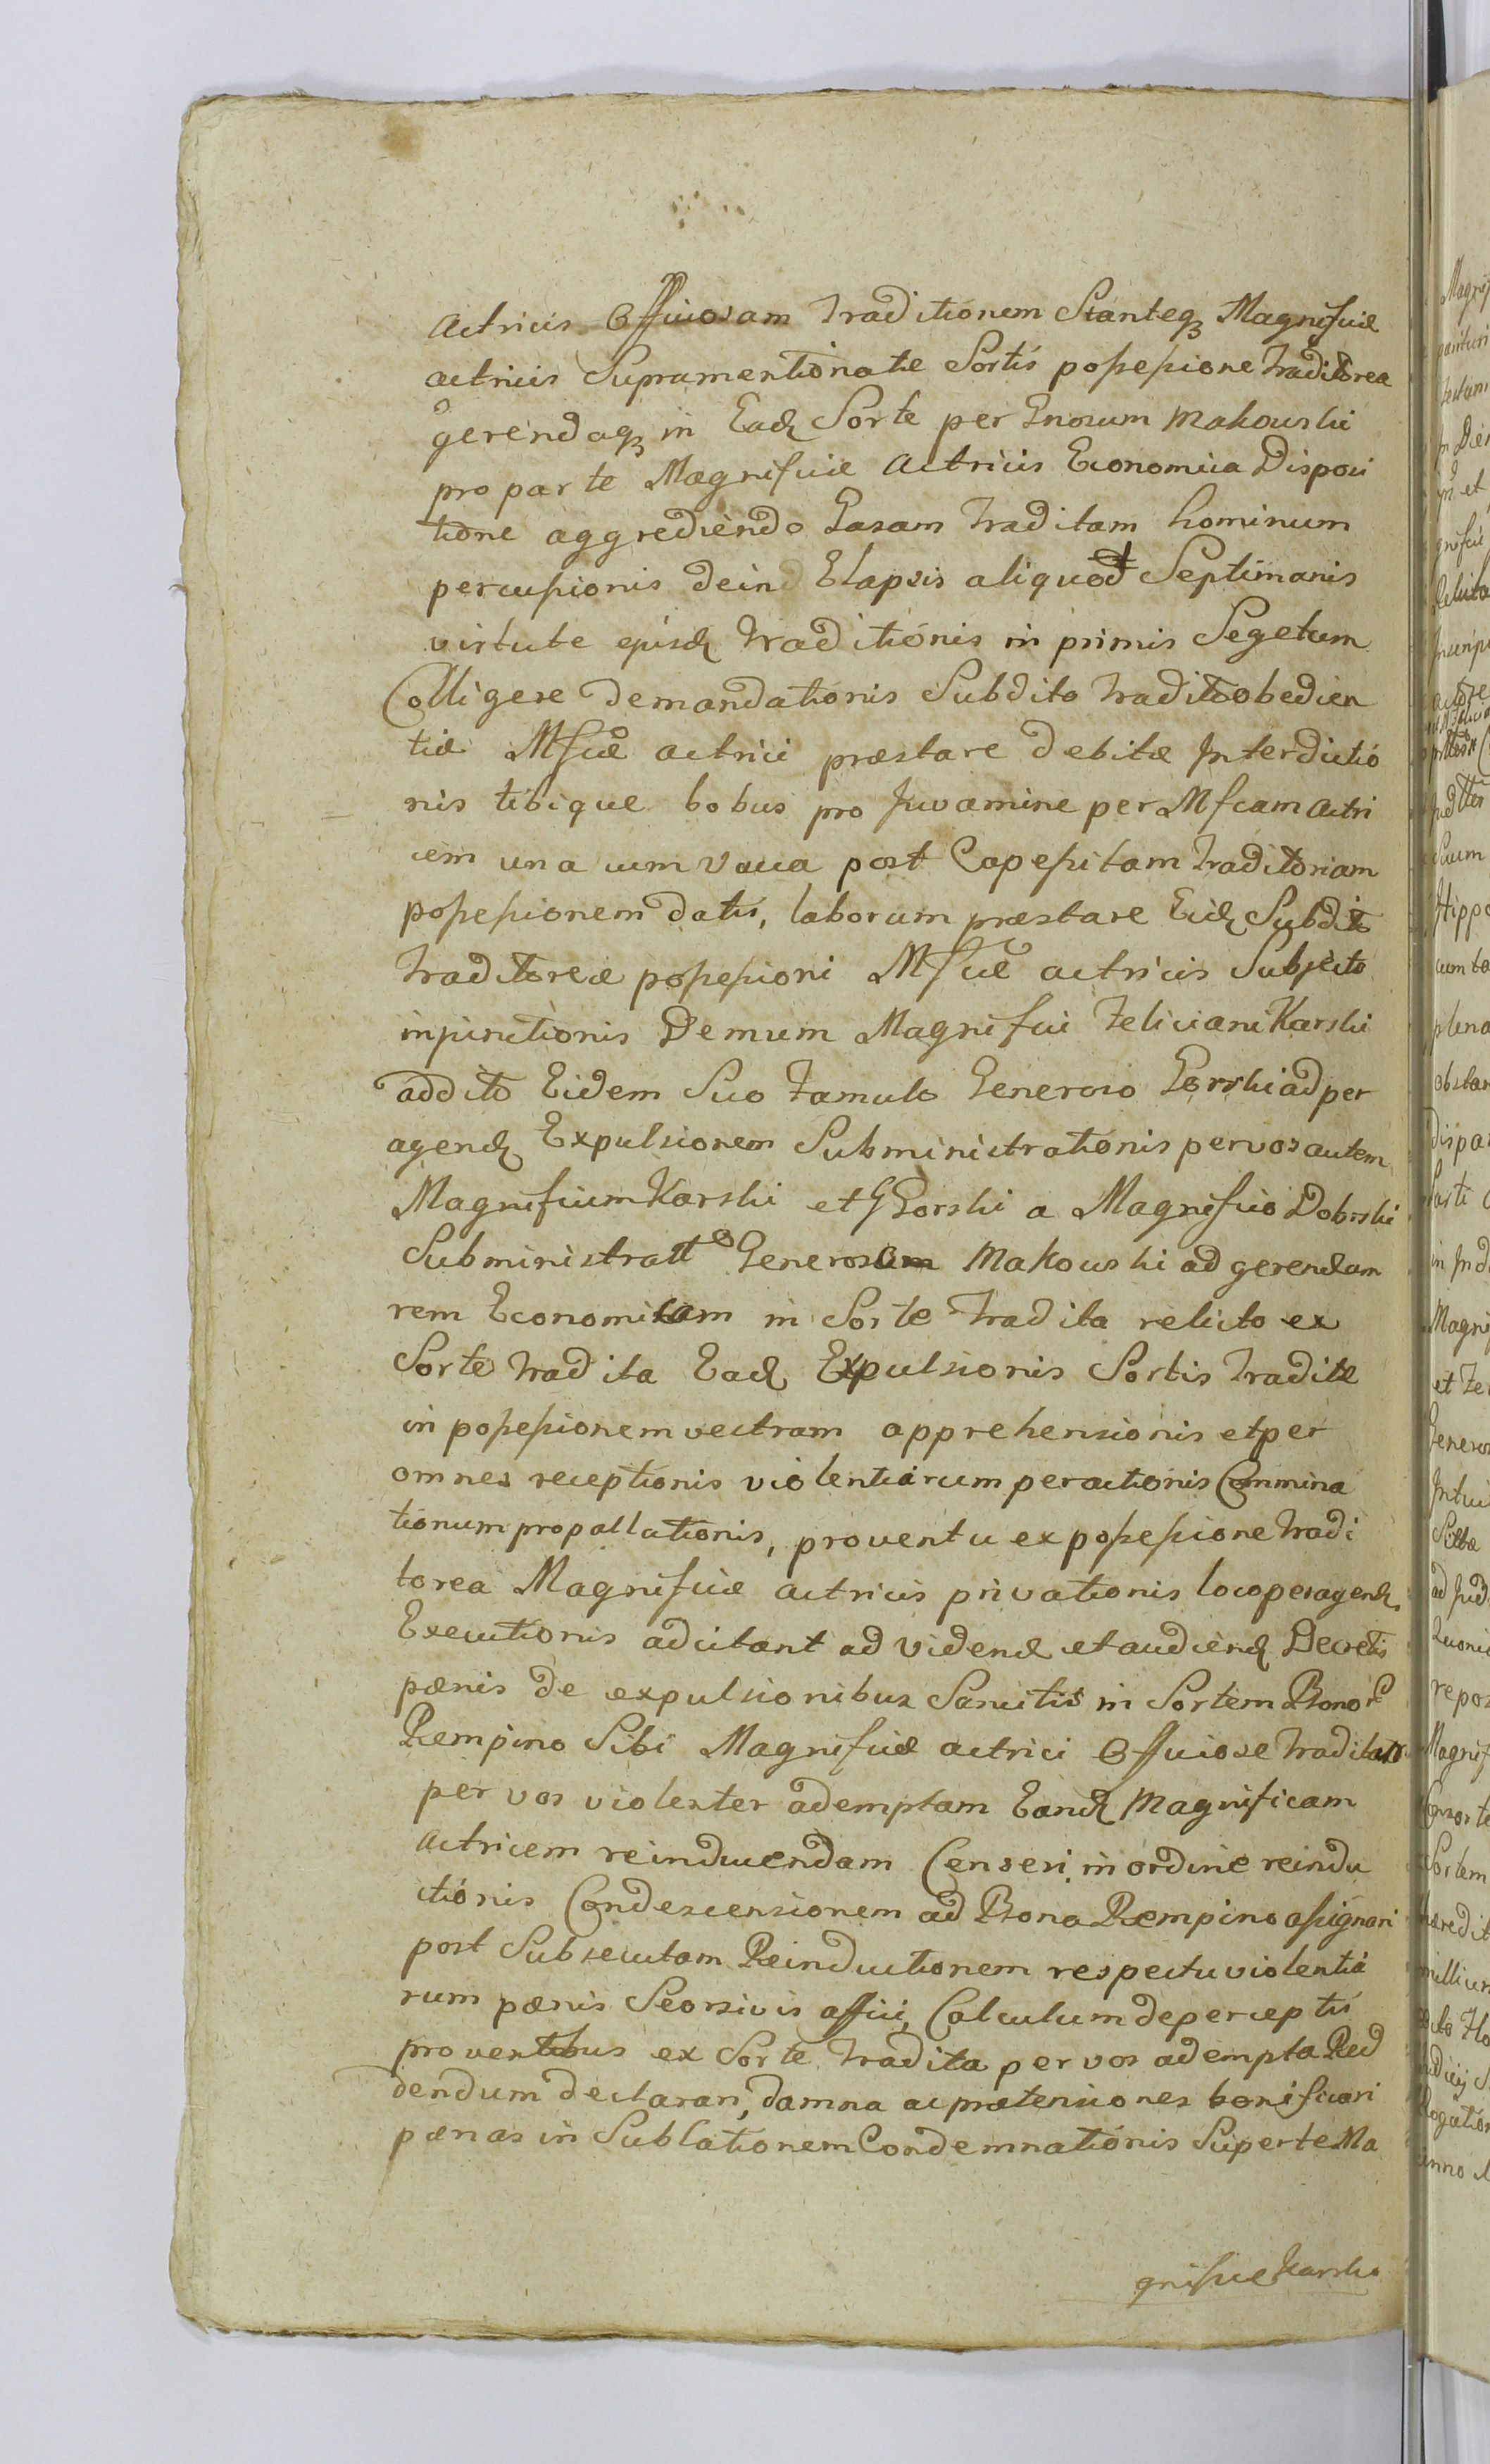 Actricis Officiosam Traditionem Stanteq3 Magnificæ
actricis Supramentionatæ Sortis possessione Traditorea
gerendaq3 in Eadz Sorte per Gnosum Makowski
pro parte Magnificæ Actricis Economica Disposi
tione aggrediendo Casam Traditam hominum
percussionis deind Elapsis aliquod Septimanis
virtute ejusdz Traditionis in primis Segetum
Colligere demandationis Subdito Tradito obedien
tiæ Mfcæ actrici præstare debitæ Interdictio
nis tibique bobus pro Juvamine per Mfcam Actri
cem una cum Vacca post Capessitam Traditoriam
possessionem datis, laborum præstare Eidz Subdito
Traditoreæ possessioni Mfcæ actricis Subjecto
injunctionis Demum Magnifici Feliciani Karski
addito Eidem Suo Famulo Generoso Gorski ad per
agendz Expulsionem Subministrationis per vos autem
Magnificum Karski et G Gorski a Magnifico Dobrski
Subministratt Generosum Makowski ad gerendam
rem Economicam in Sorte Tradita relicto ex
Sorte Tradita Eadz Expulsionis Sortis Traditæ
in possessionem vestram apprehensionis et per
omnes receptionis violentiarum peractionis Commina
tionum propallationis, proventu ex possessione Tradi
torea Magnificæ actricis privationis loco peragendz
Executionis adcitant ad Videndz et audiendz Decretis
pænis de expulsionibus Sancitis in Sortem Bonor
Rempino Sibi Magnificæ actrici Officiose Traditam
per vos violenter ademptam Eandz Magnificam
Actricem reinducendam Censeri, in ordine reindu
ctionis Condescensionem ad Bona Rempino assignari
post Subsecutam Reinductionem respectu violentia
rum pænis Seorsivis affici, Calculum de perceptis
proventibus ex Sorte Tradita per vos adempta Red
dendum declarari, damna ac prætensiones bonificari
pænas in Sublationem Condemnationis Super te Ma
gnificæ Karska